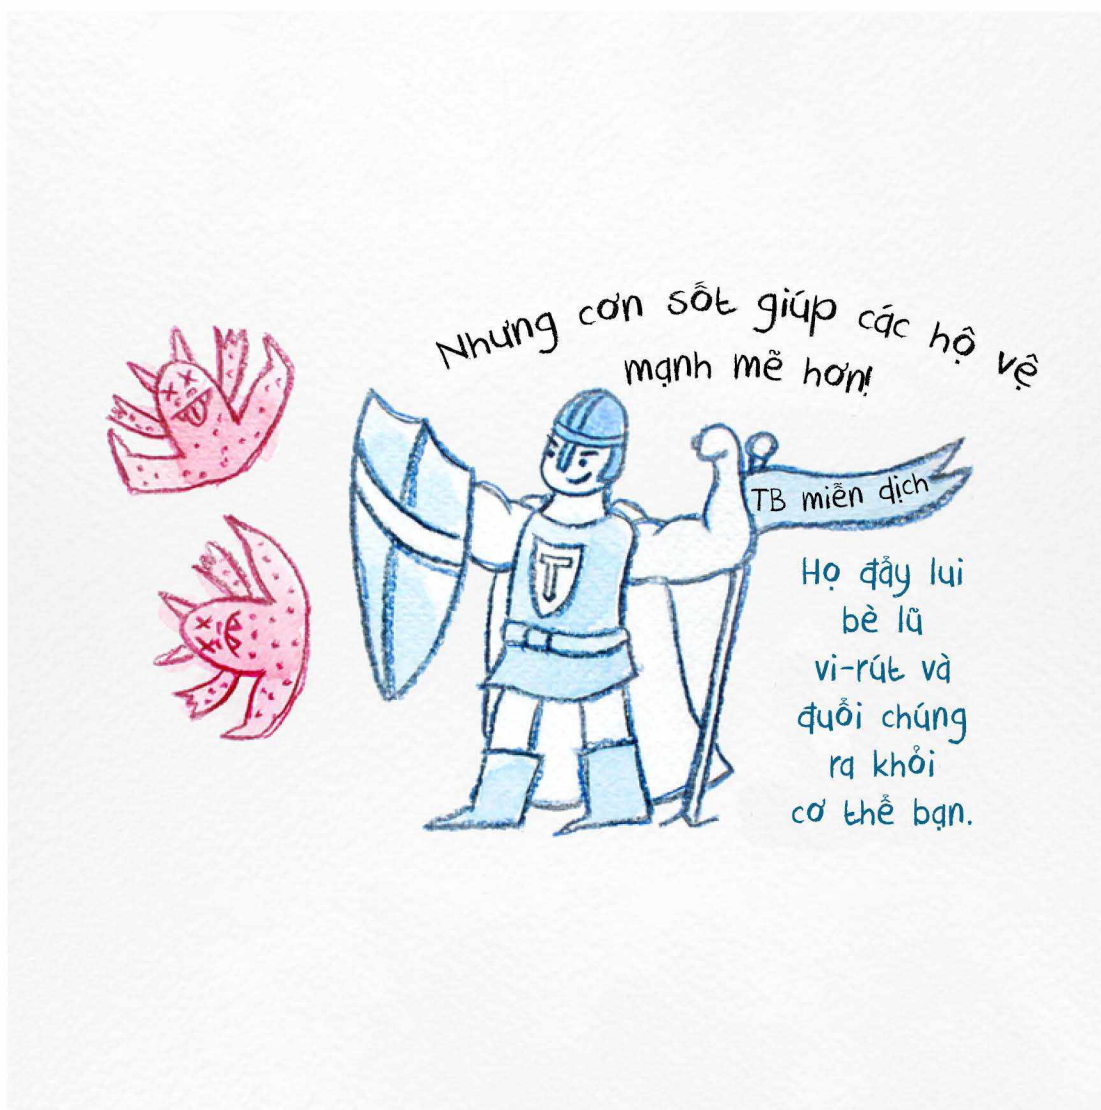 Nhưng cơn sốt giúp các hộ vệ
mạnh mẽ hơn!
T
TB miễn dịch
Họ đẩy lui
bè lũ
vi-rút và
đuổi chúng
ra khỏi
cơ thể bạn.